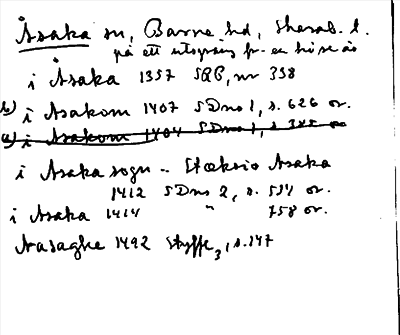 Åsaka sn, Barne hd, Skarab. l.
på ett utsprång fr. en höse ås
i Åsaka 1357 SRP, nr 338
b) i Asakom 1407 SDns 1, s. 626 or.
a) i Asakom 1404 SDns 1, s 385 or
i Asaka sogn .. Stæksio Asaka
1412 SDns 2, s. 534 or.
i Asaka 1414 " 758 or.
Aasaghe 1492 Styffe 3, s. 147